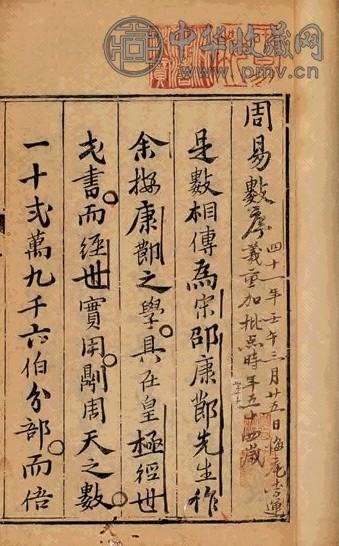 中华收藏网
www.pmv.cn
周易數序
四十一年壬午三月廿五日
義重加批点時年五十四歲
是數相傳為宋邵康節先生作
余按康節之學具在皇極經世
之書而經世實用
周天之數
一十弍萬九千六伯分部而